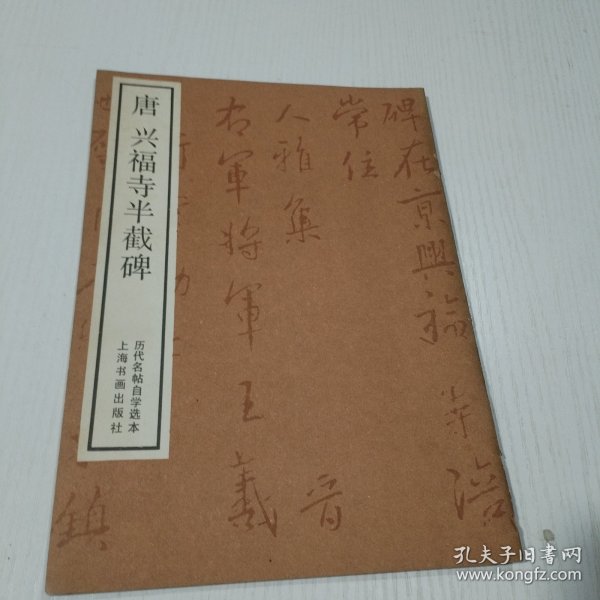 唐 兴福寺半截碑
历代名帖自学选本
上海书画出版社
碑在京興福寺涪
常住
人雅集 晋
右軍将軍王羲
鎮
孔夫子旧书网
www.kongfz.com